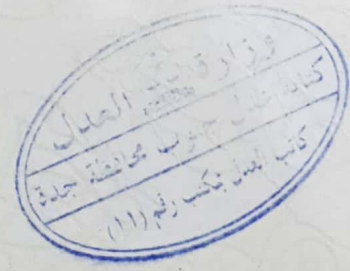 وزارة العدل
كتابة عدل جنوب محافظة جدة
كاتب العدل مكتب رقم (١١)